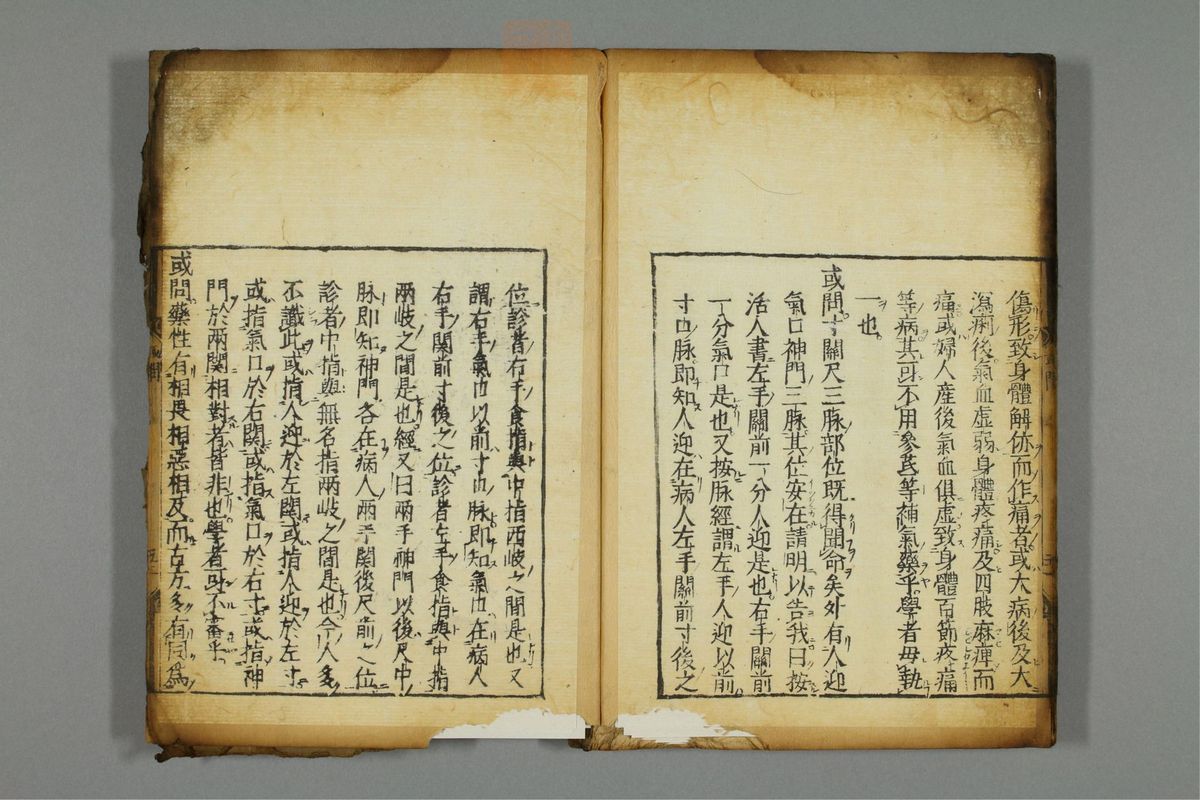 傷形致身體解㑊而作痛者或大病後及大
瀉痢後氣血虛弱身體疼痛及四肢麻痺而
痛或婦人産後氣血俱虛致身體百節疼痛
等病其可不用參芪等補氣藥乎學者毋執
一也
或問寸關尺三脉部位既得聞命矣外有人迎
氣口神門三脉其位安在請明以告我曰按
活人書左手關前一分人迎是也右手關前
一分氣口是也又按脉經謂左手人迎以前
寸口脉即知人迎在病人左手關前寸後之
位診者右手食指與中指兩岐之間是也又
謂右手氣口以前寸口脉即知氣口在病人
右手関前寸後之位診者左手食指與中指
兩岐之間是也經又曰兩手神門以後尺中
脉即知神門各在病人兩手関後尺前之位
診者中指與無名指兩岐之間是也今人多
不識此或指人迎於左関或指人迎於左寸
或指氣口於右関或指氣口於右寸或指神
門於兩関相對者皆非也學者可不審乎
或問藥性有相畏相惡相反而古方多有同爲